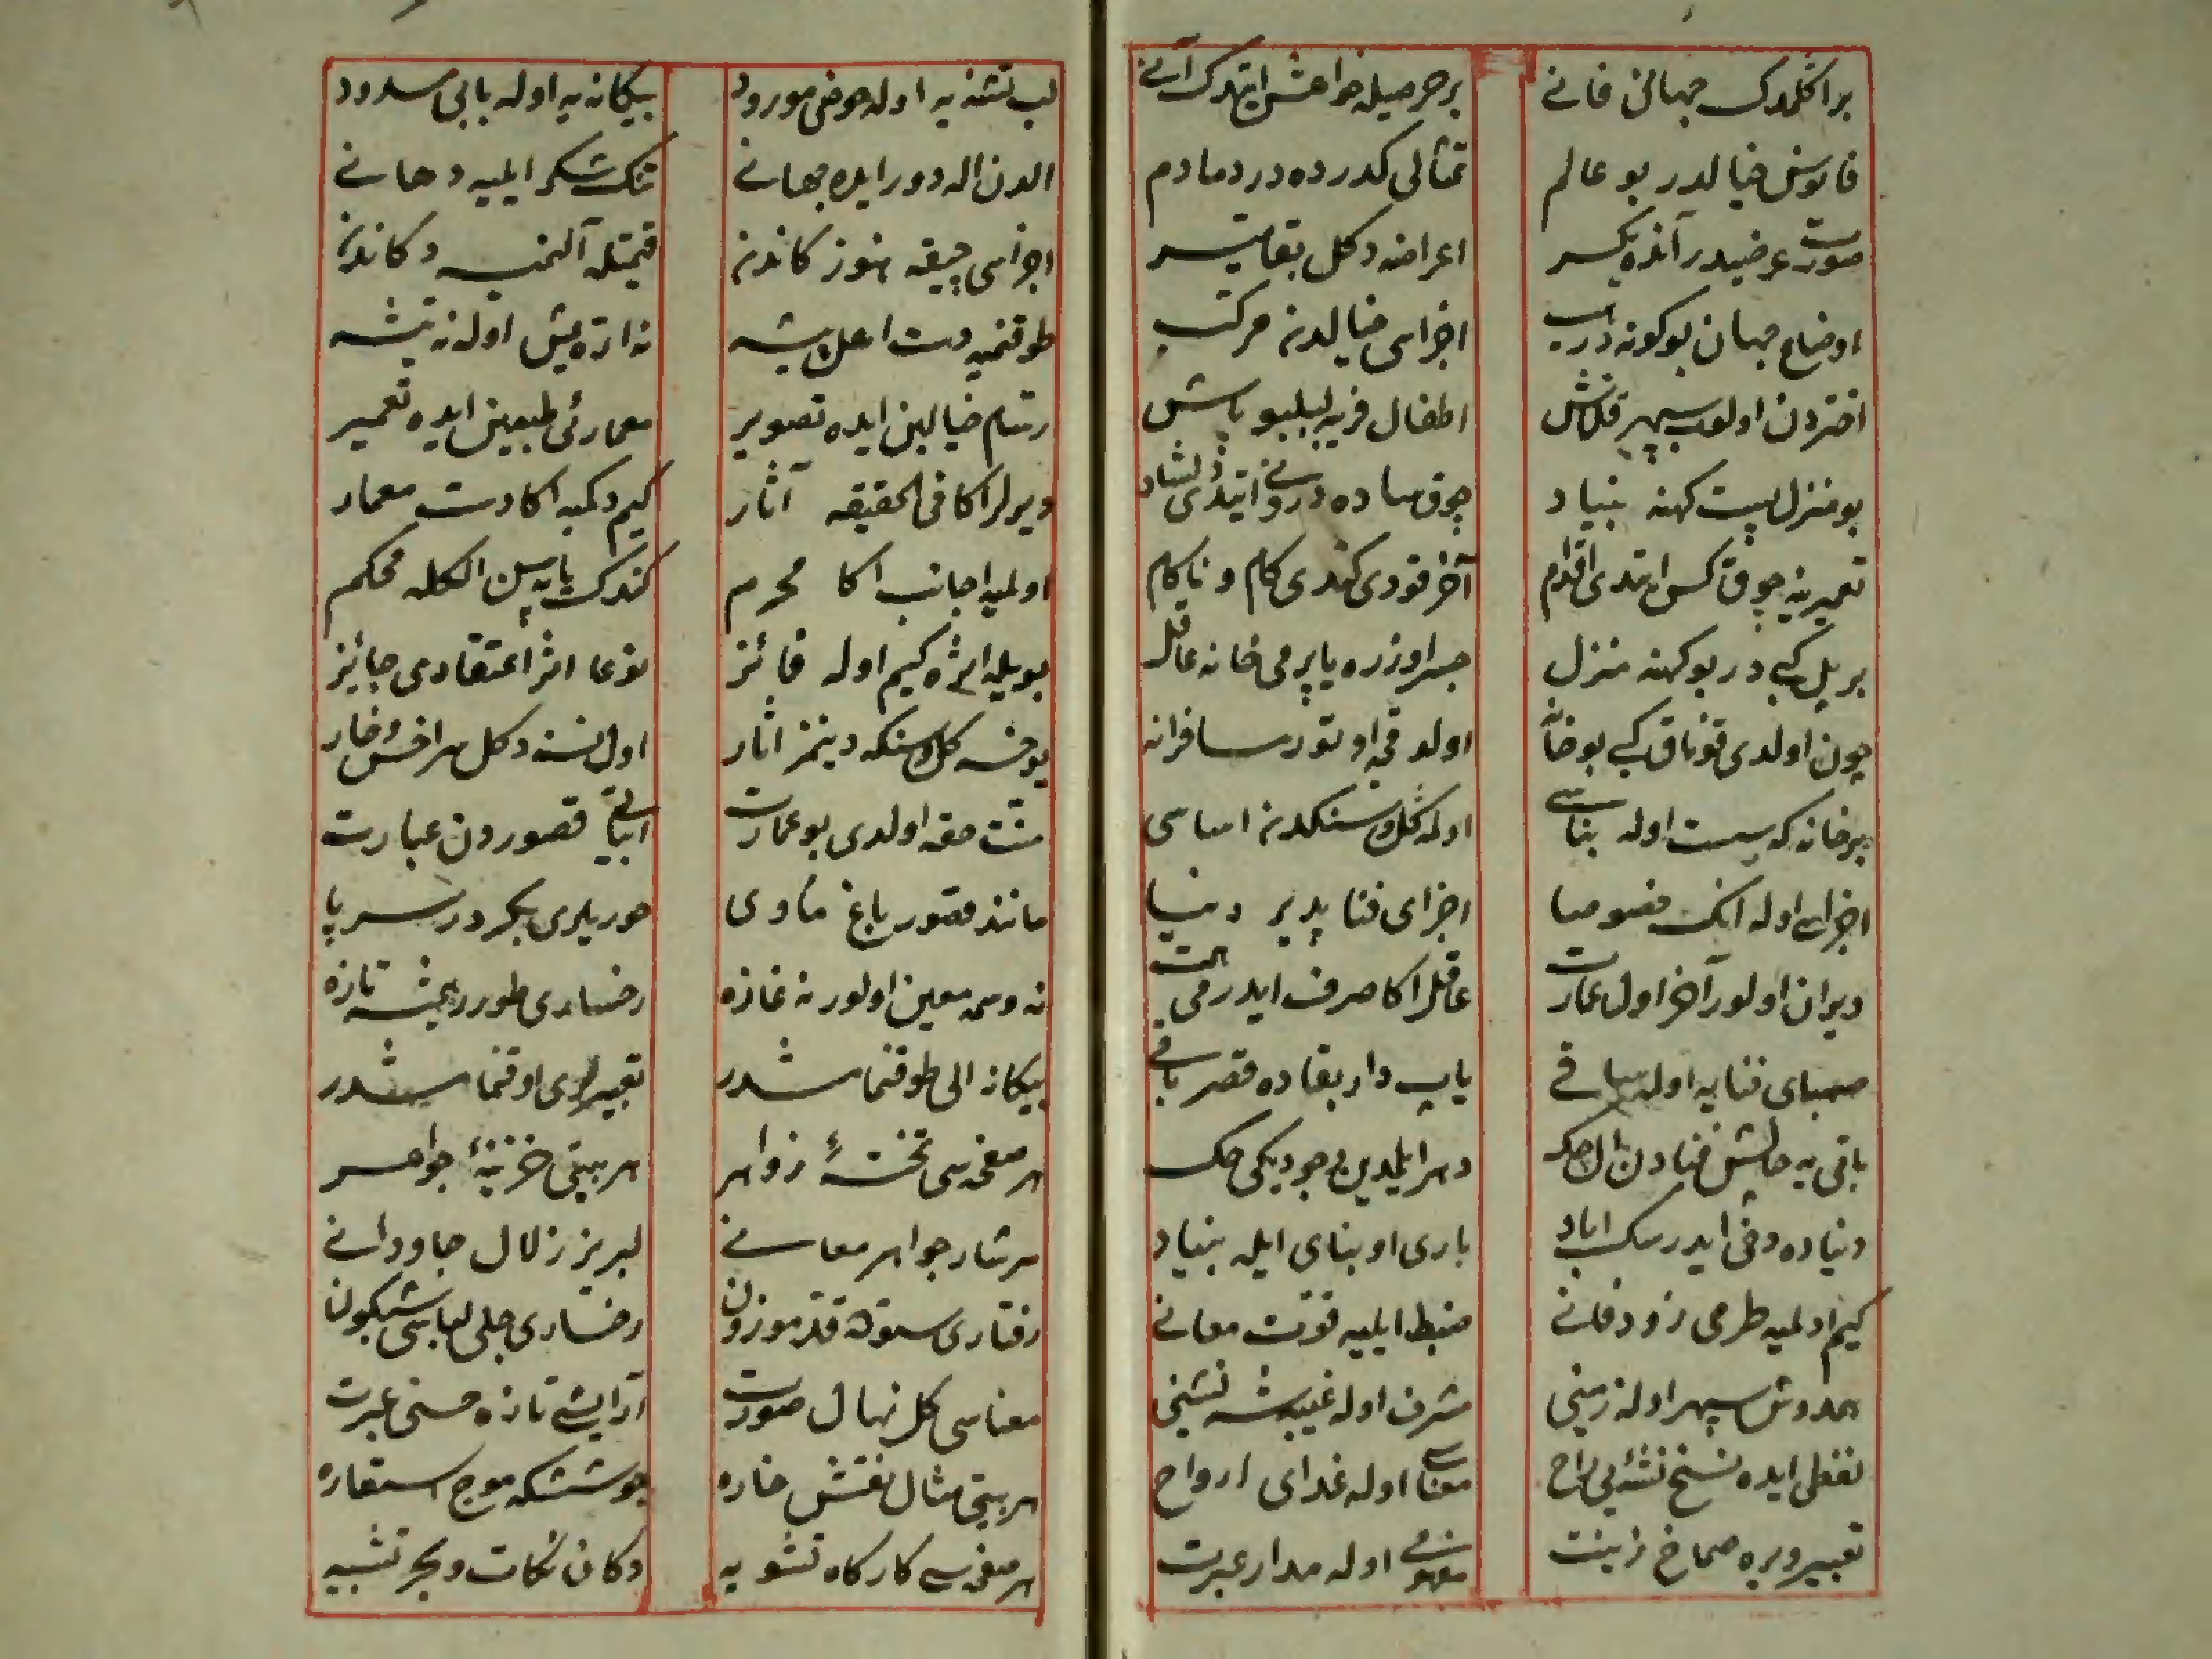 بر اکلمدک جهانی فانے برحرصیله خواهش ایتدک آنے
فانوس خیالدر بو عالم تمثالی کدرده در دمادم
صورت عرضیدر آنده یکسر اعراضه دکل بقا میسر
اوضاع جهان بوکونه در اجزاسی خیالدنه مرکب
اختردن اولوب سپهر قلاش اطفال فریبه لبلبو پاش
بو منزل پست کهنه بنیاد چوق ساده درونے ایتدی لشاد
تعمیرینه چوق کس ایتدی اقدام آخر قودی کندی کام و ناکام
بر پل کبے در بو کهنه منزل جسر اوزره یاپرمی خانه عاقل
چون اولدی قوناق کبے بو خانه اولد قجه اوتور مسافرانه
بر خانه که سست اوله بناسے اوله کل و سنکدنه اساسی
اجزاسے اوله انک خصوصا اجزای فنا پذیر دنیا
ویران اولور آخر اول عمارت عاقل اکا صرف ایدرمی
صهبای فنایه اوله ساقے یاپ دار بقاده قصر باقے
باقی یه چالش فنادن ال چک دهر ایلدین وجودیکی حک
دنیاده دخی ایدرسک آباد باری او بنای ایله بنیاد
کیم اولمیه طرحی زود فانے ضبط ایلیه قوت معانے
همدوش سپهر اوله زمینی مشرف اوله غیبه شه نشینی
لفظی ایده نسخ نشئه یی راح معناسے اوله غدای ارواح
تعبیر ویره صماخ زینت مفهومے اوله مدار عبرت
لب تشنه یه اوله حوضی مورود بیکانه یه اوله بابی مسدود
الدن اله دور ایده جهانے تنک شکر ایلیه دهانے
اجزاسی چیقه هنوز کاندنه قیمتله آلنمیه دکاندنه
طوقنمیه دست اعل پیشه نه اره یتیش اوله نه تیشه
رسام خیالین ایده تصویر معمارئی طبعین ایده تعمیر
ویرلر اکا فی الحقیقه آثار کیم دکمیه اکا دست معمار
اولمیه اجانب اکا محرم کندک یاپه سن الکله محکم
بویله اثره کیم اوله فائز نوعا اثر اعتقادی جائز
یوخسه کل و سنکه دینمز اثار اول نسنه دکل مر اخس و خار
منت حقه اولدی بو عمارت ابیاتے قصوردن عبارت
مانند قصور باغ مأوی حوریلری بکر در سراپا
نه وسمه معین اولور نه غازه رخساری طورر همیشه تازه
بیکانه الی طوقنمامشدر تعبیرلری اوقنمامشدر
هر صفحه سی تختهٔ زواهر هر بیتی خزینهٔ جواهر
سرشار جواهر معانے لبریز زلال جاودانے
رفتاری ستوده قد موزون رخساری جلی لباسی شبکون
معناسی کل نهال صورت آرایشے تازه حسنی عبرت
هر بیتی مثال نقش خاره جوششکه موج استعاره
هر صفحه سے کارکاه تشویه دکان نکات و بحر تشبیه